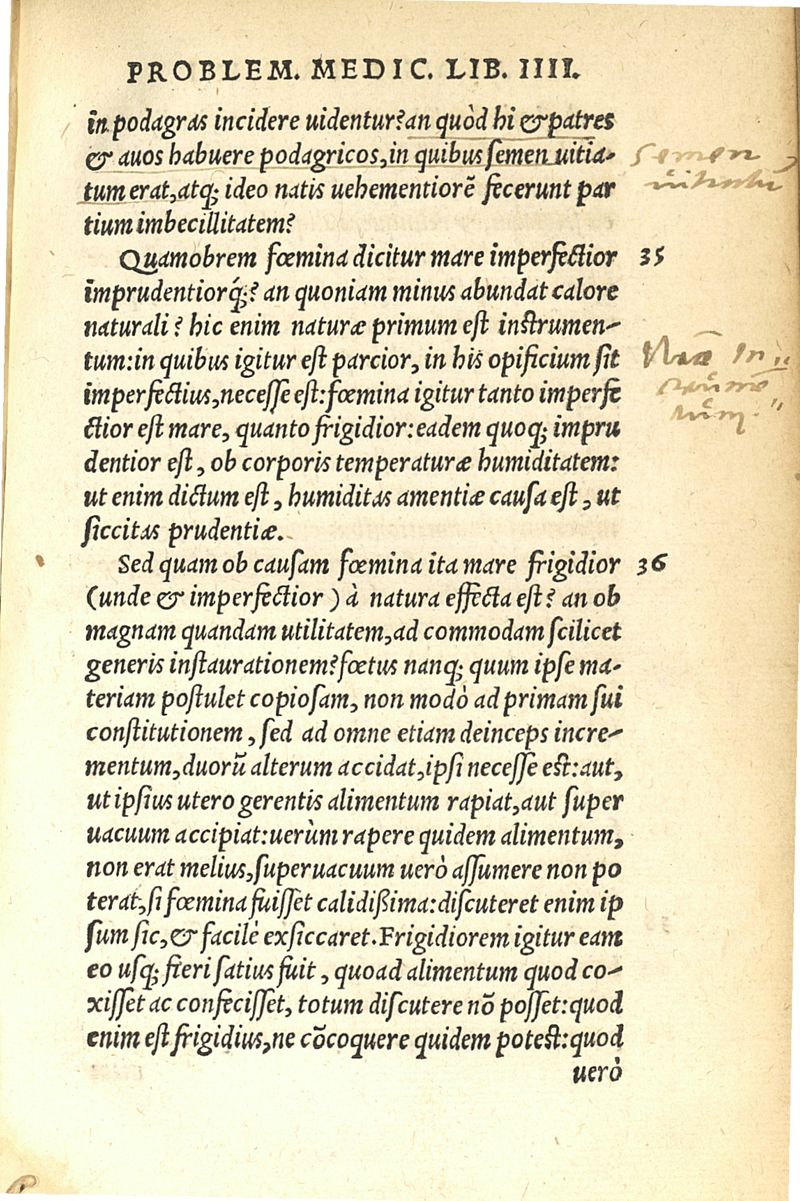 PROBLEM. MEDIC. LIB. IIII.
in podagras incidere uidentur? an quòd hi & patres
& auos habuere podagricos, in quibus semen uitia-
tum erat, atq; ideo natis uehementiorē fecerunt par
tium imbecillitatem?
Semen
uitiatū
Quamobrem fœmina dicitur mare imperfectior 35
imprudentiorq́;? an quoniam minus abundat calore
naturali? hic enim naturæ primum est instrumen-
tum: in quibus igitur est parcior, in his opificium sit
imperfectius, necesse est: fœmina igitur tanto imperfe
ctior est mare, quanto frigidior: eadem quoq; impru
dentior est, ob corporis temperaturæ humiditatem:
ut enim dictum est, humiditas amentiæ causa est, ut
siccitas prudentiæ.
Sed quam ob causam fœmina ita mare frigidior 36
(unde & imperfectior) à natura effecta est? an ob
magnam quandam utilitatem, ad commodam scilicet
generis instaurationem? fœtus nanq; quum ipse ma-
teriam postulet copiosam, non modò ad primam sui
constitutionem, sed ad omne etiam deinceps incre-
mentum, duorū alterum accidat, ipsi necesse est: aut,
ut ipsius utero gerentis alimentum rapiat, aut super
uacuum accipiat: uerùm rapere quidem alimentum,
non erat melius, superuacuum uerò assumere non po
terat, si fœmina fuisset calidißima: discuteret enim ip
sum sic, & facilè exsiccaret. Frigidiorem igitur eam
eo usq; fieri satius fuit, quoad alimentum quod co-
xisset ac confecisset, totum discutere nō posset: quod
enim est frigidius, ne cōcoquere quidem potest: quod
uerò